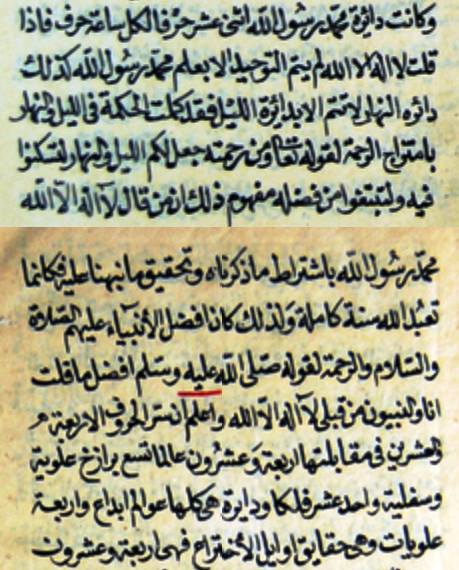 وكانت دائرة محمد رسول الله اثنى عشر حرفا لكل ساعة حرف فاذا
قلت لا اله الا الله لم يتم التوحيد الا بعلم محمد رسول الله كذلك
دائره النهار لا تتم الا بدائرة الليل فقد كملت الحكمة فى الليل والنهار
بامتزاج الرحمة لقوله تعالى ومن رحمته جعل لكم الليل والنهار لتسكنوا
فيه ولتبتغوا من فضله مفهوم ذلك ان من قال لا اله الا الله
محمد رسول الله باشتراط ما ذكرناه وتحقيق ما نبهنا عليه فكانما
تعبد الله سنة كاملة ولذلك كان افضل الأنبياء عليهم الصلاة
والسلام والرحمة لقوله صلى الله عليه وسلم افضل ما قلت
انا والنبيون من قبلى لا اله الا الله واعلم ان سر الحروف الاربعة
والعشرين فى مقابلتها اربعة وعشرون عالما تسع برازخ علوية
وسفلية واحد عشر فلكا ودايرة هى كلها عوالم ابداع واربعة
علويات وهى حقايق اوايل الأختراع فهى اربعة وعشرون